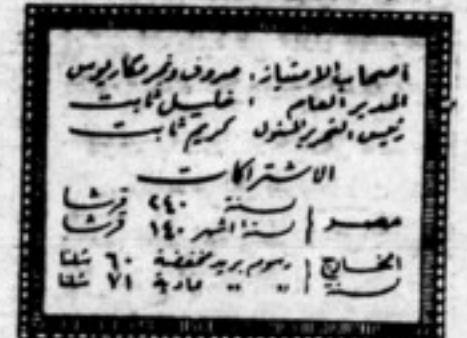 أصحاب الامتياز: صروف ونمر ومكاريوس
المدير العام : خليل ثابت
رئيس التحرير المسئول كريم ثابت
الاشتراكات
مصر | سنة ٢٤٠ قرشا
ستة اشهر ١٤٠ قرشا
الخارج | رسوم بريد مخفضة ٦٠ شلنا
سنة | " " عادية ٧١ شلنا